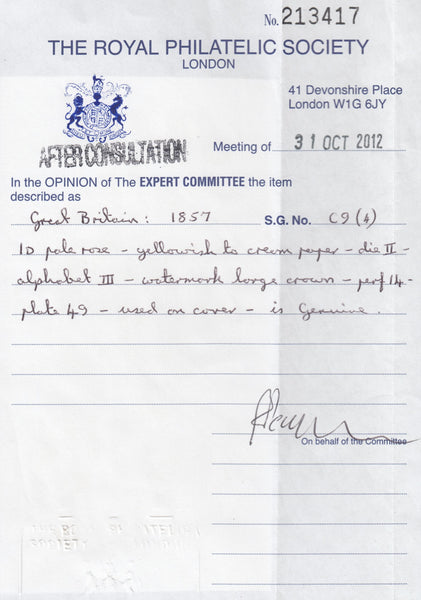 No. 213417
THE ROYAL PHILATELIC SOCIETY
LONDON
41 Devonshire Place
London W1G 6JY
AFTER CONSULTATION
Meeting of 31 OCT 2012
In the OPINION of The EXPERT COMMITTEE the item
described as
Great Britain: 1857 S.G. No. C9(4)
1D pale rose - yellowish to cream paper - die II -
alphabet III - watermark large crown - perf 14 -
plate 49 - used on cover - is Genuine.
On behalf of the Committee
SOCIETY